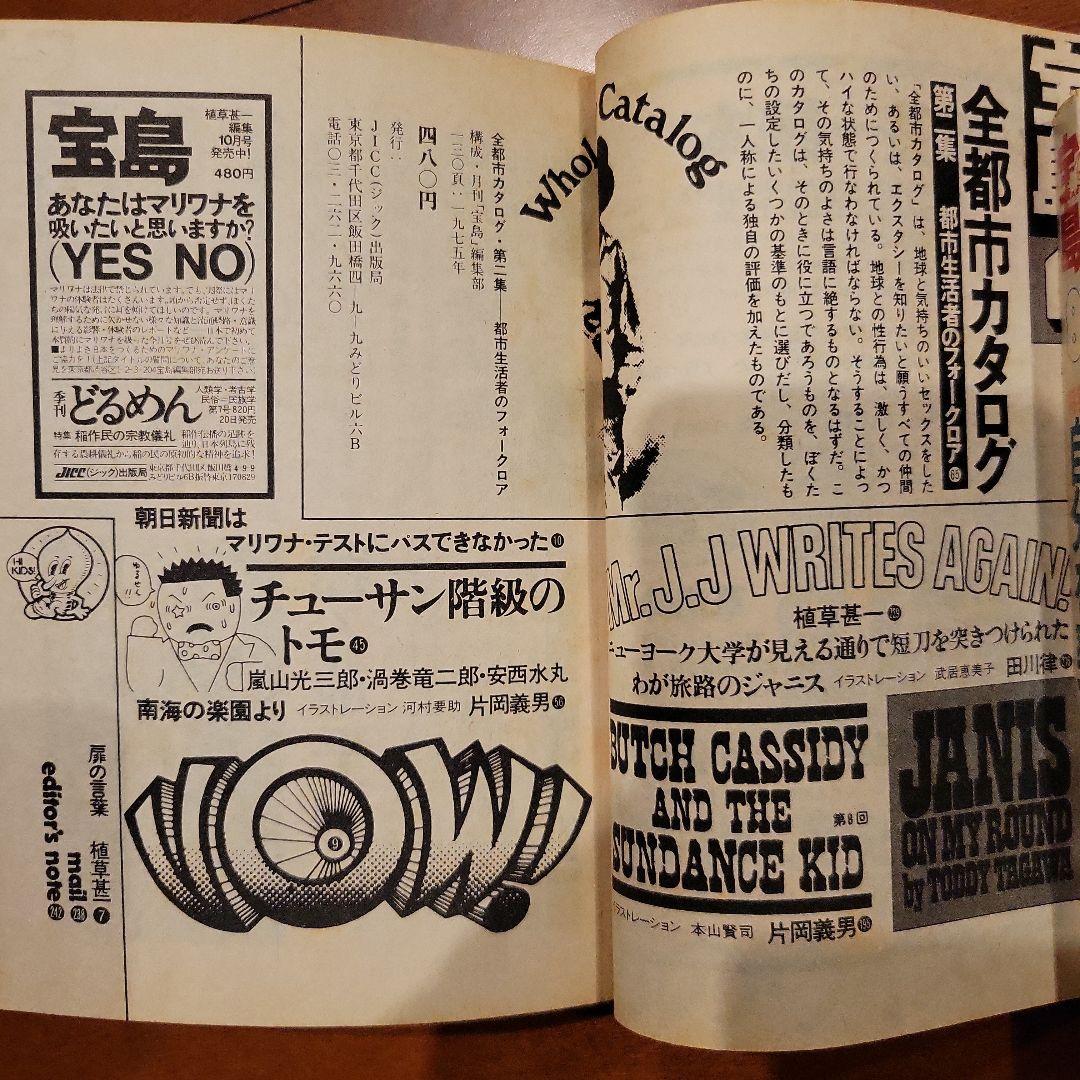 全都市カタログ
第二集 都市生活者のフォークロア 65
「全都市カタログ」は、地球と気持ちのいいセックスをした
い、あるいは、エクスタシーを知りたいと願うすべての仲間
のためにつくられている。地球との性行為は、激しく、かつ
ハイな状態で行なわなければならない。そうすることによっ
て、その気持ちのよさは言語に絶するものとなるはずだ。こ
のカタログは、そのときに役に立つであろうものを、ぼくた
ちの設定したいくつかの基準のもとに選びだし、分類したも
のに、一人称による独自の評価を加えたものである。
Catalog
Mr. J.J WRITES AGAIN!
植草甚一
ニューヨーク大学が見える通りで短刀を突きつけられた
わが旅路のジャニス イラストレーション 武居恵美子 田川律
BUTCH CASSIDY
AND THE
SUNDANCE KID
第8回
イラストレーション 本山賢司 片岡義男
JANIS
ON MY ROUND
by TODDY TAGAWA
全都市カタログ・第二集——都市生活者のフォークロア
構成・月刊「宝島」編集部
一三〇頁・一九七五年
四八〇円
発行:
JICC(ジック)出版局
東京都千代田区飯田橋四ノ九ノ九みどりビル六B
電話〇三・二六二・九六六〇
宝島
植草甚一
編集
10月号
発売中!
480円
あなたはマリワナを
吸いたいと思いますか?
(YES NO)
季刊 どるめん
人類学・考古学
民俗=民族学
第7号820円
20日発売
特集 稲作民の宗教儀礼
稲作伝播の足跡を
辿り、日本列島に残
存する農耕儀礼から稲の民の原初的な精神を追求!
JICC(ジック)出版局 東京都千代田区飯田橋4-9-9
みどりビル6B振替東京170829
朝日新聞は
マリワナ・テストにパスできなかった 10
HI
KIDS!
チューサン階級の
トモ 45
嵐山光三郎・渦巻竜二郎・安西水丸
南海の楽園より イラストレーション 河村要助 片岡義男 56
VOW!
9
扉の言葉 植草甚一 7
mail 238
editor's note 242